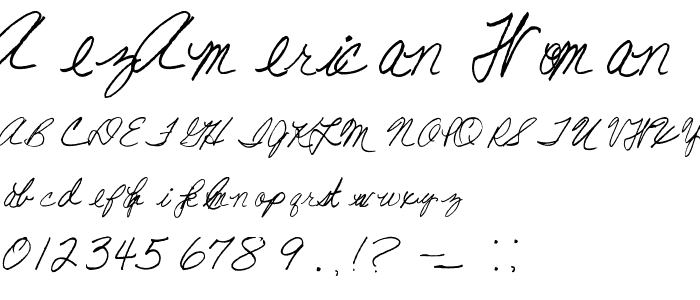 A ezAmerican Woman
ABCDEFGHIJKLMNOPQRSTUVWXY
abcdefghijklmnopqrstuvwxyz
0123456789.,!?-_:;